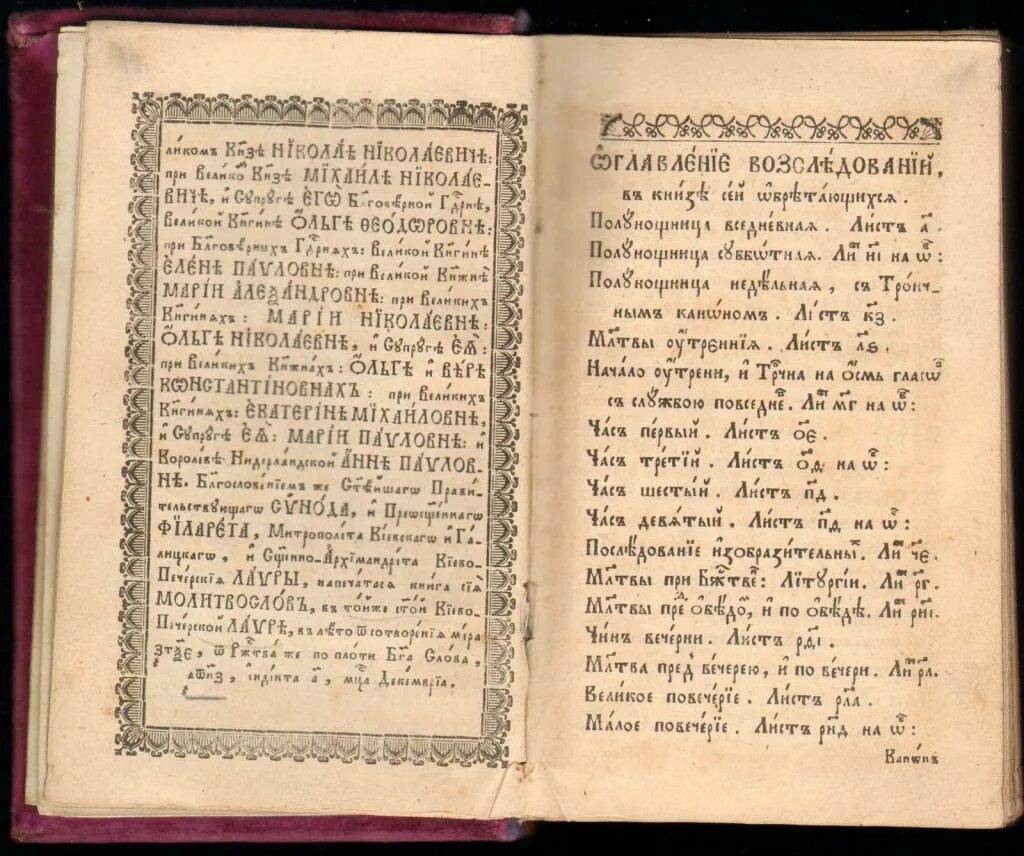 ликомъ Кн҃зѣ НІКОЛАѢ НІКОЛАЕВИЧѢ:
при Велико́мъ Кн҃зѣ МІХАИЛѢ НІКОЛАЕ-
ВИЧѢ, и҆ Сꙋпрꙋгѣ ЕГѠ̀ Бл҃говѣрной Гдⷭ҇рнѣ,
Великой Кн҃гинѣ О҆́ЛЬГѢ ѲЕОДѠРОВНѢ:
при Бл҃говѣрныхъ Гдⷭ҇рняхъ: Великой Кн҃гинѣ
Е҆ЛЕНѢ ПАѴЛОВНѢ: при Великой Кн҃жнѣ
МАРІИ АЛЕѮАНДРОВНѢ: при Великихъ
Кн҃гиняхъ: МАРІИ НІКОЛАЕВНѢ:
О҆́ЛЬГѢ НІКОЛАЕВНѢ, и҆ Сꙋпрꙋгѣ Е҆Ѧ̀:
при Великихъ Кн҃жнахъ: О҆́ЛЬГѢ и҆ ВѢРѢ
КѠНСТАНТІНОВНАХЪ: при Великихъ
Кн҃гиняхъ: Е҆КАТЕРІНѢ МІХАИЛОВНѢ,
и҆ Сꙋпрꙋгѣ Е҆Ѧ̀: МАРІИ ПАѴЛОВНѢ: и҆
Королевѣ Нидерландской А҆́ННѢ ПАѴЛОВ-
НѢ. Бл҃гословеніемъ же Ст҃ѣйшагѡ Прави-
тельствꙋющагѡ СѴНО́ДА, и҆ Преѡсщ҃еннагѡ
ФІЛАРЕ́ТА, Митрополі́та Кіевскагѡ и҆ Га-
лицкагѡ, и҆ Сщ҃енно-А҆рхімандрі́та Кіево-
Печерскія ЛА́ѴРЫ, напечатася книга сія̀
МОЛИТВОСЛО́ВЪ, въ то́йже ст҃ой Кіево-
Печерской ЛА́ѴРѢ, въ лѣто ѿ сотворенія міра
҂зт҃ѯе, ѿ Ржⷭ҇тва же по плоти Бг҃а Слова,
҂аѡ҃нз, і҆ндікта а҃, мцⷭ҇а Декемврїа.
Ѡ҆ГЛАВЛЕ́НІЕ ВОЗСЛѢ́ДОВАНІЙ,
въ кни́зѣ се́й ѡ҆брѣта́ющихся.
Полꙋ́нощница вседне́вная. Ли́стъ а҃.
Полꙋ́нощница сꙋббѡ́тная. Лиⷭ҇ и҃і на ѡ҆б:
Полꙋ́нощница недѣ́льная, съ Тро́ич-
нымъ канѡ́номъ. Ли́стъ к҃з.
Мл҃твы оу҆́тренніѧ. Ли́стъ л҃е.
Нача́ло оу҆́трени, и҆ Трⷪ҇чна на о҆́смь гласѡ́въ
съ слꙋ́жбою повседне́в. Лиⷭ҇ м҃г на ѡ҆б:
Ча́съ пе́рвый. Ли́стъ о҃е.
Ча́съ тре́тій. Ли́стъ о҃д на ѡ҆б:
Ча́съ шесты́й. Ли́стъ п҃д.
Ча́съ девя́тый. Ли́стъ п҃д на ѡ҆б:
Послѣ́дованіе и҆зобрази́тельныхъ. Лиⷭ҇ ч҃е.
Мл҃твы при Бж҃ⷭ҇твѣ: Літꙋргі́и. Лиⷭ҇ р҃г.
Мл҃твы преⷣ ѻ҆бѣ́домъ, и҆ по ѻ҆бѣ́дѣ. Лиⷭ҇ р҃иі.
Чи́нъ вече́рни. Ли́стъ р҃ді.
Мл҃тва предъ ве́черею, и҆ по ве́чери. Лиⷭ҇ р҃л.
Вели́кое повече́ріе. Ли́стъ р҃ла.
Ма́лое повече́ріе. Ли́стъ р҃нд на ѡ҆б:
Канѡ́нъ